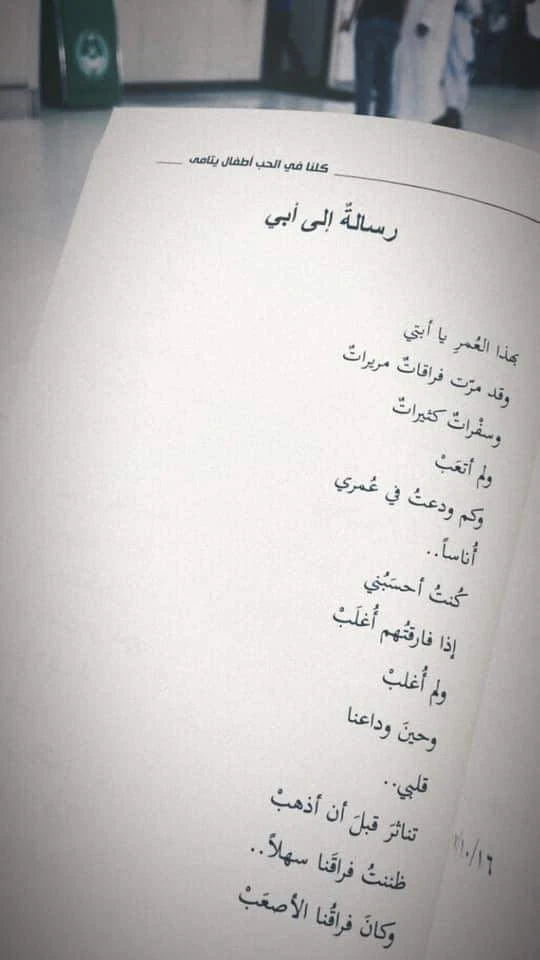 كلنا في الحب أطفال يتامى
رسالةٌ إلى أبي
بهذا العُمرِ يا أبتي
وقد مرّت فراقاتٌ مريراتٌ
وسفْراتٌ كثيراتٌ
ولم أتعَبْ
وكم ودعتُ في عُمري
أُناساً..
كُنتُ أحسَبُني
إذا فارقتُهم أُغلَبْ
ولم أُغلبْ
وحينَ وداعنا
قلبي..
تناثرَ قبلَ أن أذهبْ
ظننتُ فراقَنا سهلاً..
وكانَ فراقُنا الأصعَبْ